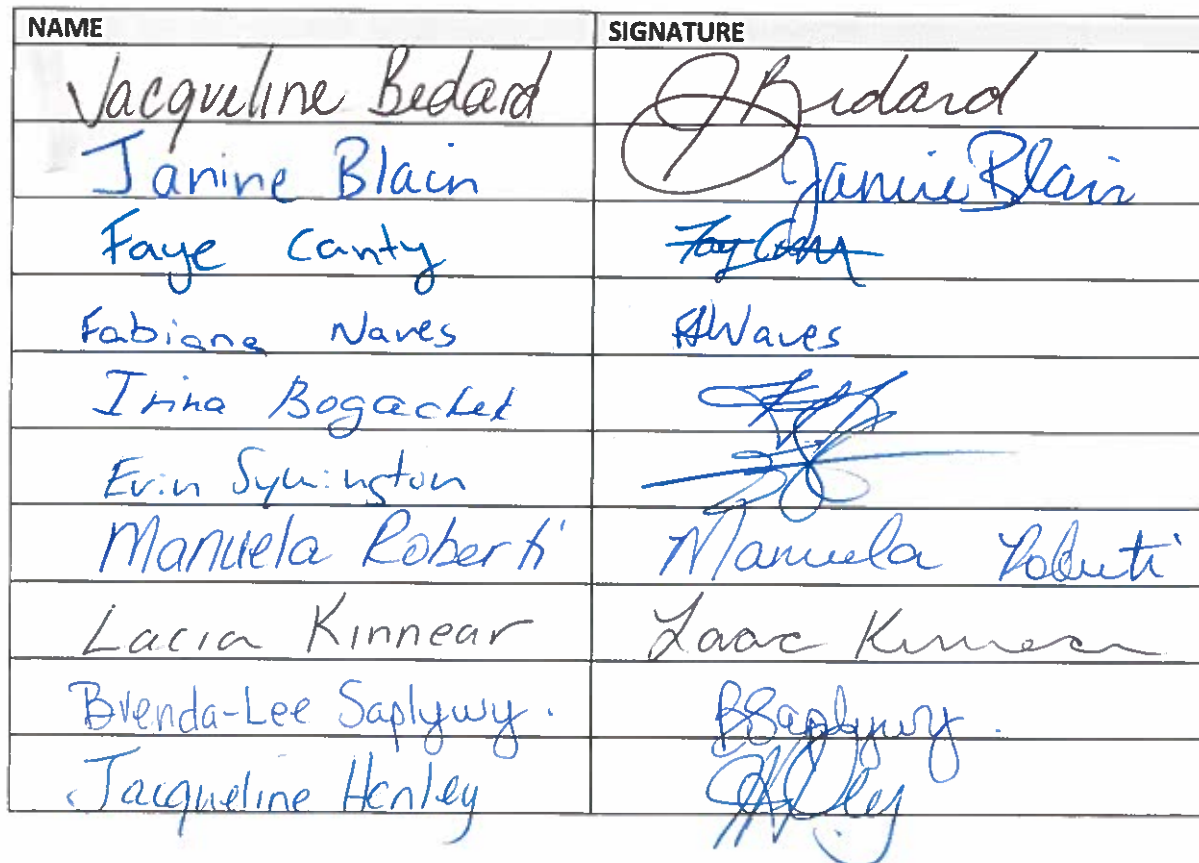 NAME SIGNATURE
Jacqueline Bedard JBedard
Janine Blain Janine Blain
Faye Canty
Fabiana Naves FNaves
Irina
Erin Symington
Manuela Roberti Manuela Roberti
Lacia Kinnear Kinnear
Brenda-Lee Saplywy. BSaplywy.
Jacqueline Henley